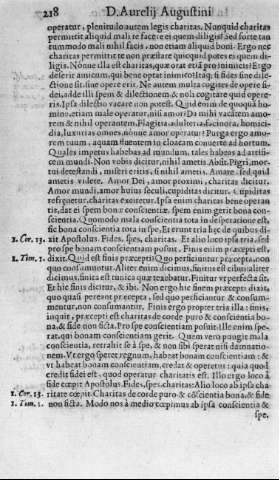 218 D. Aurelij Augustini
operatur, plenitudo autem legis charitas. Nonquid charitas
permittit aliquid mali te facere ei quem diligis? Sed forte tan
tummodo mali nihil facis, non etiam aliquid boni. Ergo nec
charitas permittit te non præstare quicquid potes ei quem di-
ligis. Nónne illa est charitas, quæ orat etiã pro inimicis? Ergo
deserit amicum, qui bene optat inimico? Itaq; si fides sine dile
ctione sit, sine opere erit. Ne autem multa cogites de opere fi-
dei, adde illi spem & dilectionem & noli cogitare quid opere-
ris. Ipsa dilectio vacare non potest. Quid enim de quoquã ho-
mine, etiam male operatur, nisi amor? Da mihi vacantem am-
orem, & nihil operantem. Flagitia, adulteria, facinora, homici-
dia, luxurias omnes, nónne amor operatur? Purga ergo amo-
rem tuum, aquam fluentem in cloacam conuerte ad hortum.
Quales impetus habebas ad mundum, tales habeas ad artifi-
cem mundi. Non vobis dicitur, nihil ametis. Absit. Pigri, mor-
tui, detestandi, miseri eritis, si nihil ametis. Amate, sed quid
ametis videte. Amor Dei, amor proximi, charitas dicitur.
Amor mundi, amor huius seculi, cupiditas dicitur. Cupiditas
refrænetur, charitas excitetur. Ipsa enim charitas bene operan
tis, dat ei spem bonæ conscientiæ. spem enim gerit bona con-
scientia. Quomodo mala conscientia tota in desperatione est,
sic bona conscientia tota in spe. Et erunt tria hęc de quibus di-
1. Cor. 13. xit Apostolus. Fides, spes, charitas. Et alio loco ipsa tria, sed
pro spe bonam conscientiam posuit. Finis enim præcepti est:
1. Tim. 1. dixit. Quid est finis præcepti? Quo perficiuntur præcepta, non
quo consumuntur. Aliter enim dicimus, finitus est cibus: aliter
dicimus, finita est tunica quæ texebatur. Finitur vt perfecta sit.
Et hic finis dicitur, & ibi. Non ergo hic finem præcepti dixit,
quo quasi pereant præcepta, sed quo perficiantur & consum-
mentur, non consumantur. Finis ergo propter tria illa: finis,
inquit, præcepti est charitas de corde puro & conscientia bo-
na, & fide non ficta. Pro spe conscientiam posuit. Ille enim spe-
rat, qui bonam conscientiam gerit. Quem vero pungit mala
conscientia, retraxit se à spe, & non sibi sperat nisi damnatio-
nem. Vt ergo speret regnum, habeat bonam conscientiam: &
vt habeat bonam conscientiam, credat & operetur: quia quod
credit fidei est, quod operatur charitatis est. Illo ergo loco à
fide cœpit Apostolus. Fides, spes, charitas: Alio loco ab ipsa cha
1. Cor. 13. ritate cœpit. Charitas de corde puro & cõscientia bona, & fide
1. Tim. 1. non ficta. Modo nos à medio cœpimus ab ipsa conscientia &
spe,